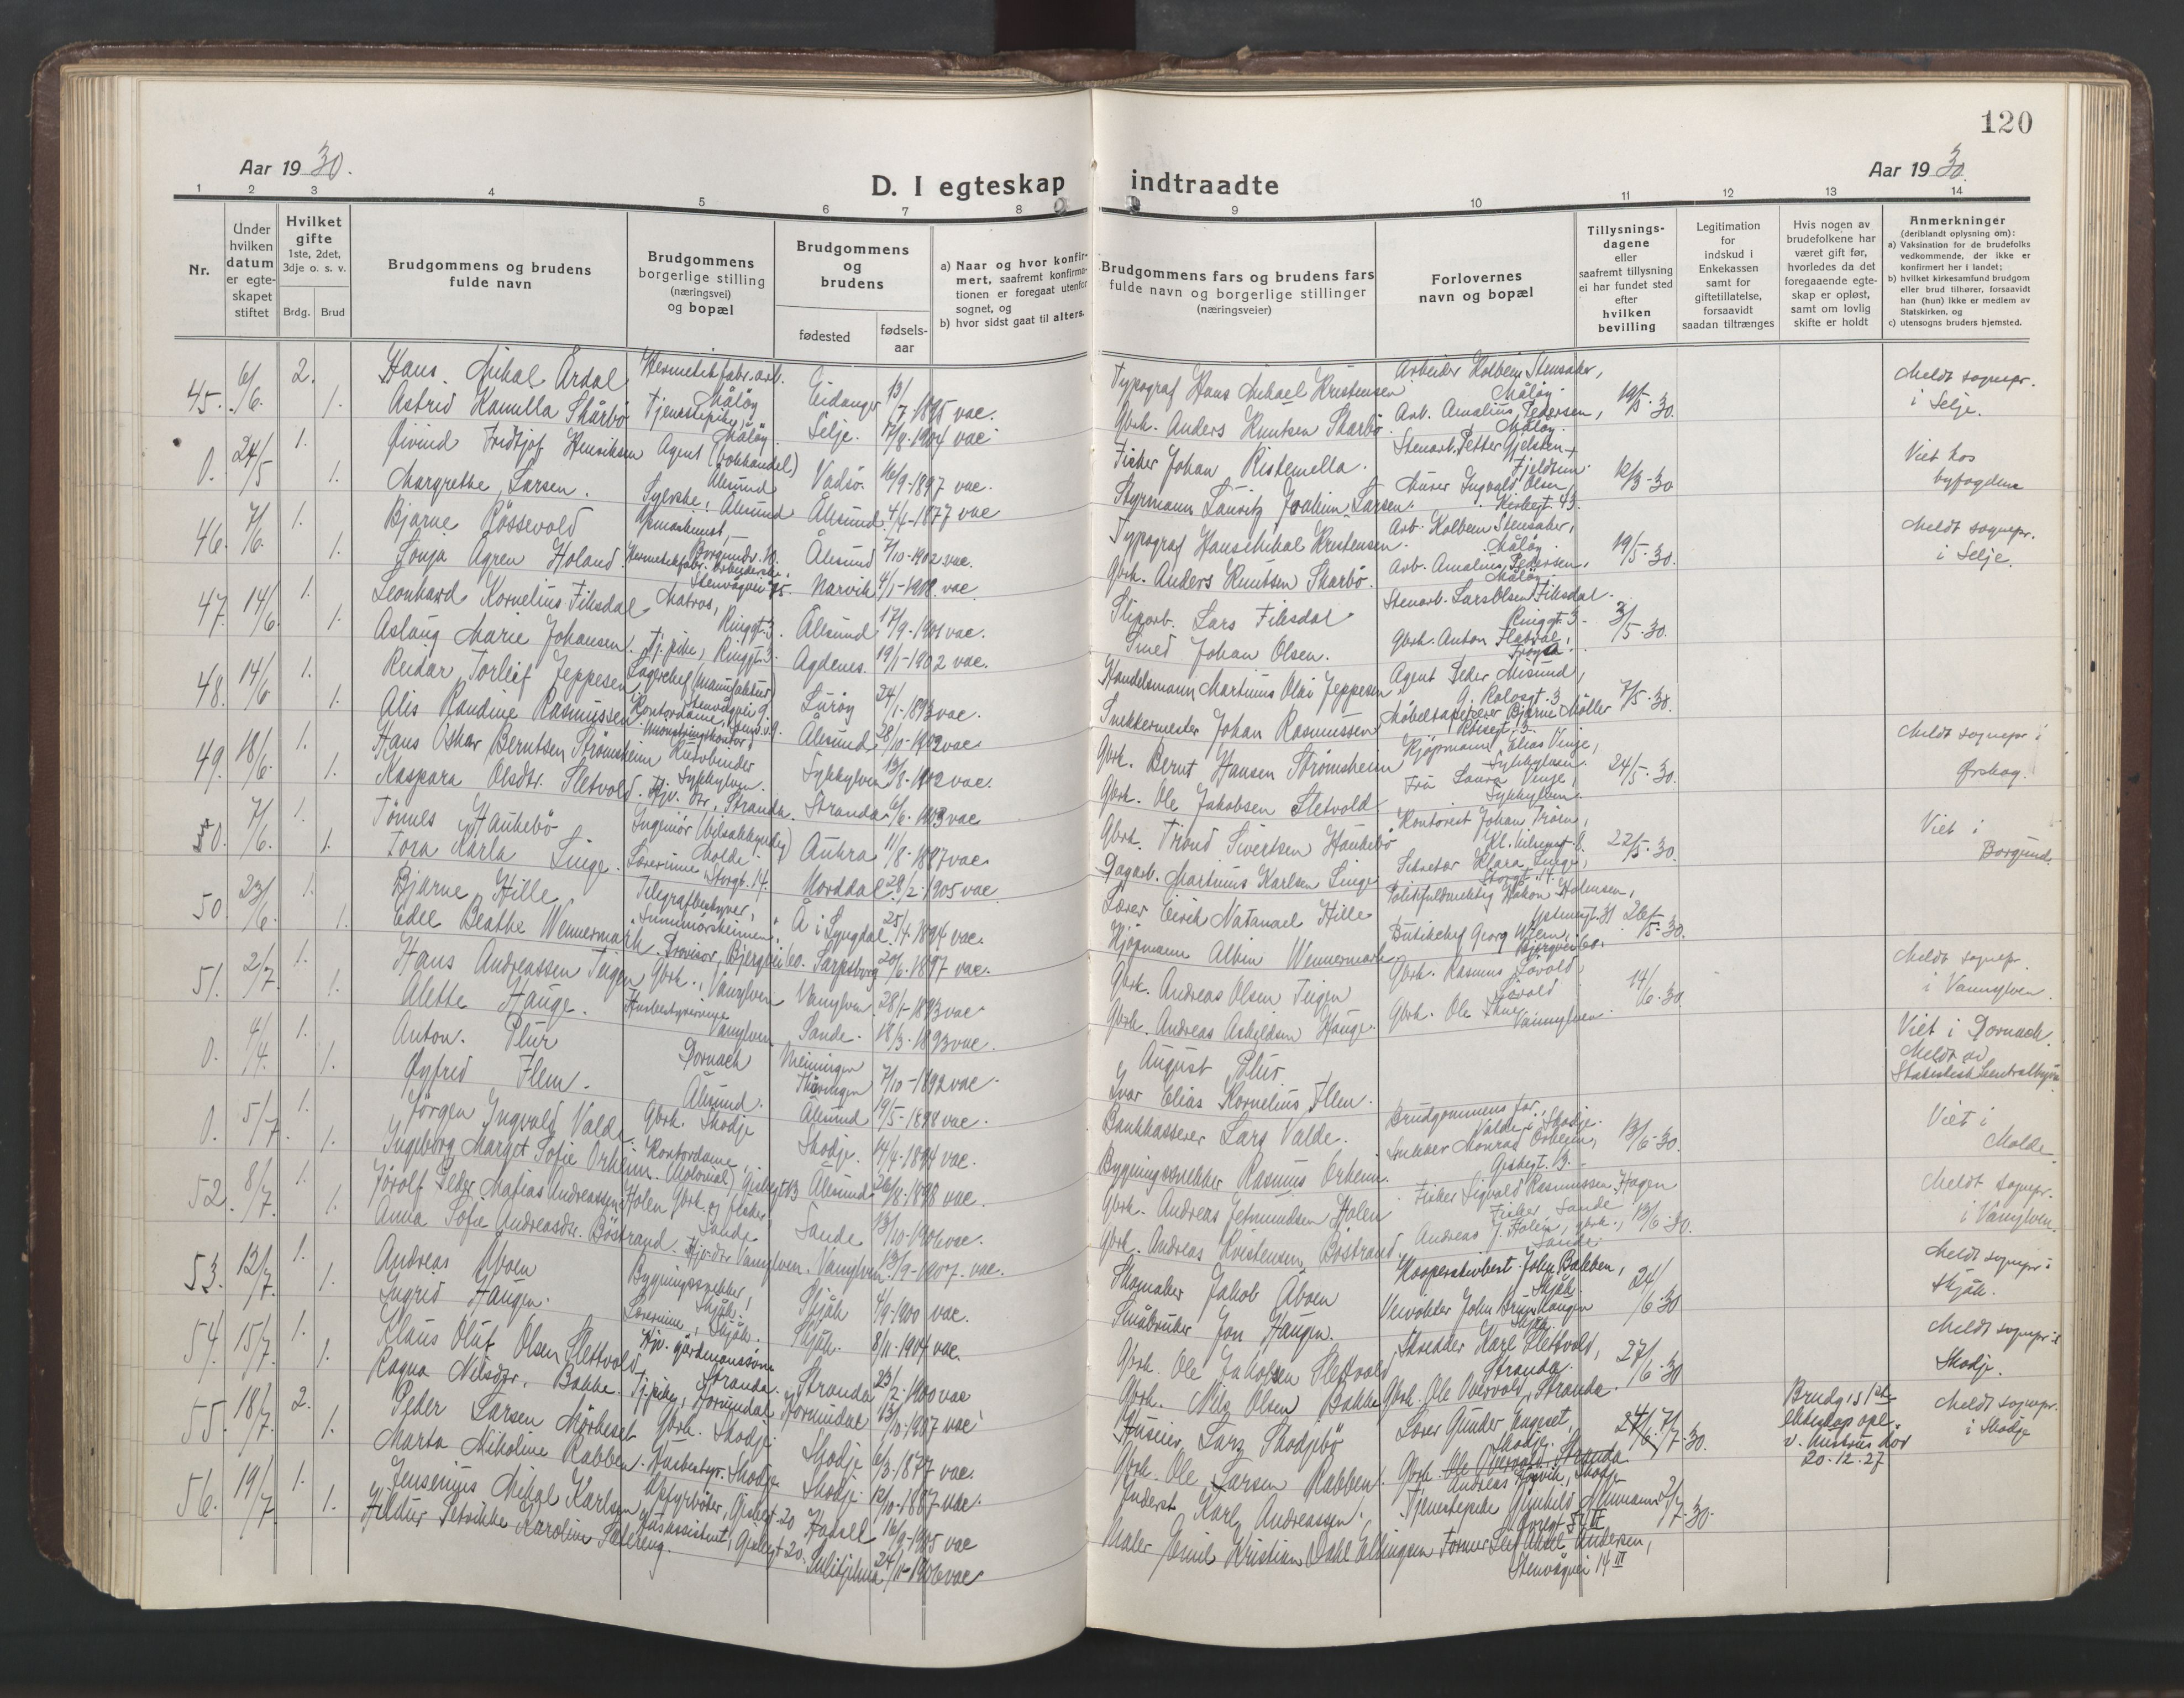 120
Aar 1930.
D. I egteskap indtraadte
Aar 1930.
1 2 3 4 5 6 7 8 9 10 11 12 13 14
Nr.
Under hvilken datum er egteskapet stiftet
Hvilket gifte 1ste, 2det, 3dje o. s. v.
Brdg. Brud
Brudgommens og brudens fulde navn
Brudgommens borgerlige stilling (næringsvei) og bopæl
Brudgommens og brudens
fødested
fødselsaar
a) Naar og hvor konfirmert, saafremt konfirmationen er foregaat utenfor sognet, og
b) hvor sidst gaat til alters.
Brudgommens fars og brudens fars fulde navn og borgerlige stillinger (næringsveier)
Forlovernes navn og bopæl
Tillysningsdagene eller saafremt tillysning ei har fundet sted efter hvilken bevilling
Legitimation for indskud i Enkekassen samt for giftetillatelse, forsaavidt saadan tiltrænges
Hvis nogen av brudefolkene har været gift før, hvorledes da det foregaaende egteskap er opløst, samt om lovlig skifte er holdt
Anmerkninger (deriblandt oplysning om):
a) Vaksination for de brudefolks vedkommende, der ikke er konfirmert her i landet;
b) hvilket kirkesamfund brudgom eller brud tilhører, forsaavidt han (hun) ikke er medlem av Statskirken, og
c) utensogns bruders hjemsted.
45. 6/6. 2. Hans Mikal Årdal Hermetikfabr.arb. Måløy Eidanger 13/7-1895 vac. Typograf Hans Mikael Kristensen Arbeider Kolbein Stensaker, Måløy 19/5-30. Meldt sognepr. i Selje.
1. Astrid Kamilla Skårbø Tjenestepike, Måløy Selje. 17/8-1904 vac Gbrk. Anders Knutsen Skarbø. Arb. Amalius Pedersen, Måløy.
0. 24/5 1. Øivind Fridtjof Henriksen Agent (bokhandel) Ålesund Vadsø. 16/9-1897 vac. Fisker Johan Ristemella. Stenarb. Petter Gjelsten, Fjeldtun 12/3-30 Viet hos byfogden
1. Margrethe Larsen. Syerske, Ålesund Ålesund 4/4-1877 vac Styrmann Lauritz Joakim Larsen. Murer Ingvald Olsen, Kirkegt. 43.
46. 7/6. 1. Bjarne Røssevold Ålesund 7/10-1902 vac. Typograf Hans Mikal Kristensen. Arb. Kolbein Stensaker, Måløy. 19/5-30. Meldt sognepr. i Selje.
1. Sonja Agren Holand. Hermetikfabr. arbeiderske, Stenvågvei 75. Narvik 4/1-1908. vac. Gbrk. Anders Knutsen Skarbø. Arb. Amalius Pedersen, Måløy.
47. 14/6. 1. Leonhard Kornelius Fiksdal Matros, Ringgt. 3 Ålesund 17/9-1901 vac. Sliparb. Lars Fiksdal Stenarb. Lars Olsen Fiksdal. Ringgt. 3 3/5-30.
1. Aslaug Marie Johansen. Tj.pike, Ringgt. 3. Agdenes. 19/1-1902 vac. Smed Johan Olsen. Gbrk. Anton Flatval, Frøya.
48. 14/6 1. Reidar Torleif Jeppesen Lagerchef (Manufaktur) Stenvågvei 9 Lurøy 24/1-1893 vac. Handelsmann Martinus Olai Jeppesen Agent Peder Misund, G. Rolvsgt. 3 7/5-30.
1. Alis Randine Rasmussen Kontordame, Ålesund 28/10-1902 vac. Snekkermester Johan Rasmussen Møbeltapetserer Bjarne Møller
49. 18/6. 1. Hans Oskar Berntsen Strømsheim Kurvbinder Sykkylven. Sykkylven 13/8-1902 vac. Gbrk. Bernt Hansen Strømsheim Kjøpmann Elias Vinje, Sykkylven. 24/5-30. Meldt sognepr i Ørskog.
1. Kaspara Olsdtr. Sletvold. Hjv. dtr., Stranda. Stranda 6/6-1903 vac Gbrk. Ole Jakobsen Sletvold Fru Laura Vinje, Sykkylven
50. 7/6. 1. Tønnes Haukebø Ingeniør (bilsakkyndig) Molde. Aukra 11/8-1887 vac. Gbrk. Trond Sivertsen Haukebø Kontorist Johan Troen, 22/5-30. Viet i Borgund.
1. Tora Karla Linge. Lærerinne, Storgt. 14. Norddal. 28/2-1905 vac Dagarb. Martinus Karlsen Linge Sekretær Klara Linge, Storgt. 14.
50. 23/6. 1. Bjarne Hille Telegrafbestyrer, Sunnmørsheimen. Å i Lyngdal 25/4-1894 vac. Lærer Eirik Natanael Hille Politifuldmektig Håkon Holmsen, 26/5-30.
1. Edle Beathe Wennermark. Provisor, Bjørgvei 60. Sarpsborg 20/6-1897 vac. Kjøpmann Albin Wennermark. Butikchef Georg Wiem, Bjørgvei 60.
51. 2/7. 1. Hans Andreassen Teigen Gbrk., Vanylven Vanylven. 28/1-1893 vac Gbrk. Andreas Olsen Teigen Gbrk. Rasmus Løvold Løvold 14/6-30. Meldt sognepr. i Vannylven.
1. Alette Hauge. Husbestyrerinne Vanylven Sande. 18/3-1893 vac. Gbrk. Andreas Askildsen Hauge. Gbrk. Ole Skue Vannylven.
0. 4/4. 1. Anton. Plur Dornach Meiningen Thüringen 7/10-1892 vac. August Plur Viet i Dornach. Meldt av Statistisk Sentralbyrå
1. Øyfrid Flem. Ålesund. Ålesund 19/5-1898 vac. Ivar Elias Kornelius Flem.
0. 5/7. 1. Jørgen Ingvald Valde. Gbrk. Skodje Skodje. 14/4-1894 vac. Bankkasserer Lars Valde. Brudgommens far, Valde i Skodje. 13/6-30. Viet i Molde
1. Ingeborg Marget Sofie Orheim. Kontordame (Kolonial) Gisbegt. 13 Ålesund 26/8-1898 vac. Bygningssnekker Rasmus Orheim. Snekker Monrad Orheim, Gisbegt. 13.
52. 8/7. 1. Jørolf Peder Mafias Andreassen Holen Gbrk. og fisker, Sande Sande 13/10-1906 vac. Gbrk. Andreas Jetmundsen Holen Fisker Sigvald Rasmussen Hagen Fisker Sande 13/6-30. Meldt sognepr. i Vanylven.
1. Anna Sofie Andreasdtr. Bøstrand. Hjv. dtr Vanylven. Vanylven 13/9-1907. vac. Gbrk. Andreas Kristensen Bøstrand. Andreas J. Holen, gbrk., Sande.
53. 12/7. 1. Andreas Åboen Bygningssnekker, Skjåk. Skjåk 4/9-1900 vac. Skomaker Jakob Åboen Kooperativbest. John Bakken, Skjåk 24/6-30 Meldt sognepr i Skjåk.
1. Ingrid Haugen. Lærerinne, Skjåk. Skjåk. 8/11-1904 vac. Småbruker Jon Haugen. Veivokter John Haugen Skjåk.
54. 15/7. 1. Klaus Oluf Olsen Slettvold Hjv. gårdmannssønn Stranda. Stranda 23/2-1900 vac Gbrk. Ole Jakobsen Slettvold Skredder Karl Slettvold, Stranda. 27/6-30 Meldt sognepr i Skodje.
1. Ragna Nilsdtr. Bakke. Tj.pike, Hornindal Hornindal 13/10-1907 vac Gbrk. Nils Olsen Bakke Gbrk. Ole Overvold, Stranda.
55. 18/7. 2. Peder Larsen Mørkeset Gbrk. Skodje Skodje 6/3.1877 vac. Huseier Lars Skodjebø Lærer Gunder Engeset, Skodje. 7/7-30. Brudg.s 1ste ekteskap opl. v. hustrus død 20-12-27 Meldt sognepr. i Skodje
1. Marta Nikoline Rabben. Husbestyr. Skodje Skodje 12/10-1887 vac. Gbrk. Ole Larsen Rabben. Gbrk. Ole Overvold, Stranda. Andreas Skodje
56. 19/7. 1. Jensenius Mikal Karlsen Gisbegt 20 Hassel 16/9-1905 vac Inderst Karl Andreassen. Tjenestepike Gunhild 2/7-30.
1. Hildur Petrikke Karoline Sætereng. Husassistent, Gisbegt 20. Sulitjelma 24/11-1906 vac Maler Emil Kristian Dahl Ellingsen Former Leif Aksel Andersen, Stenvågvei 14 III